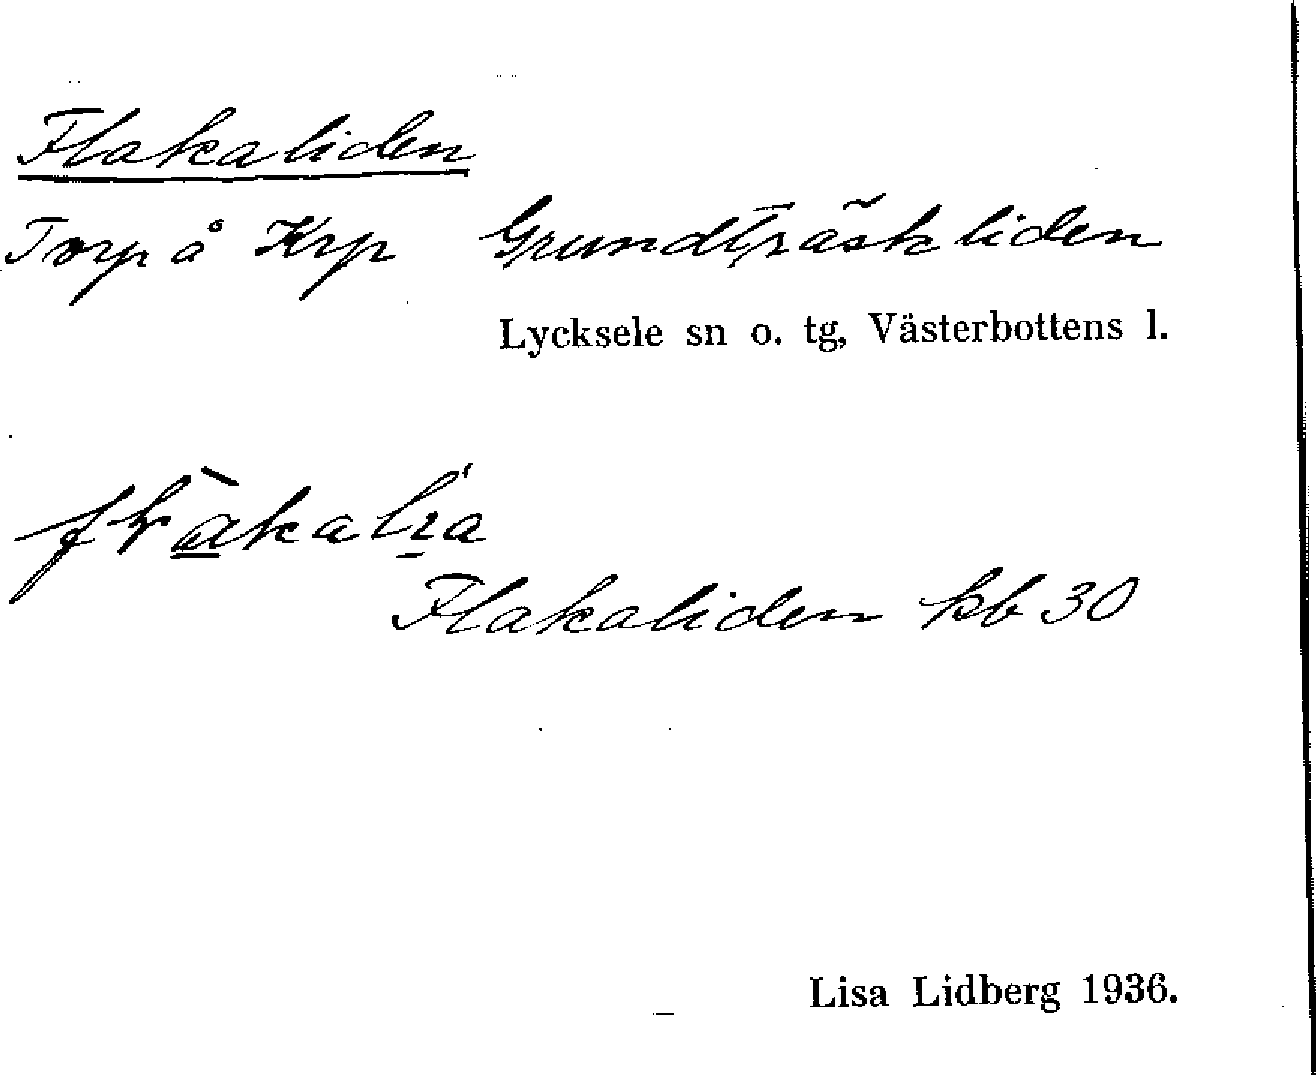 Flakaliden
Torp å Krp Grundträskliden
Lycksele sn o. tg, Västerbottens l.
Flakaliden kb 30
Lisa Lidberg 1936.